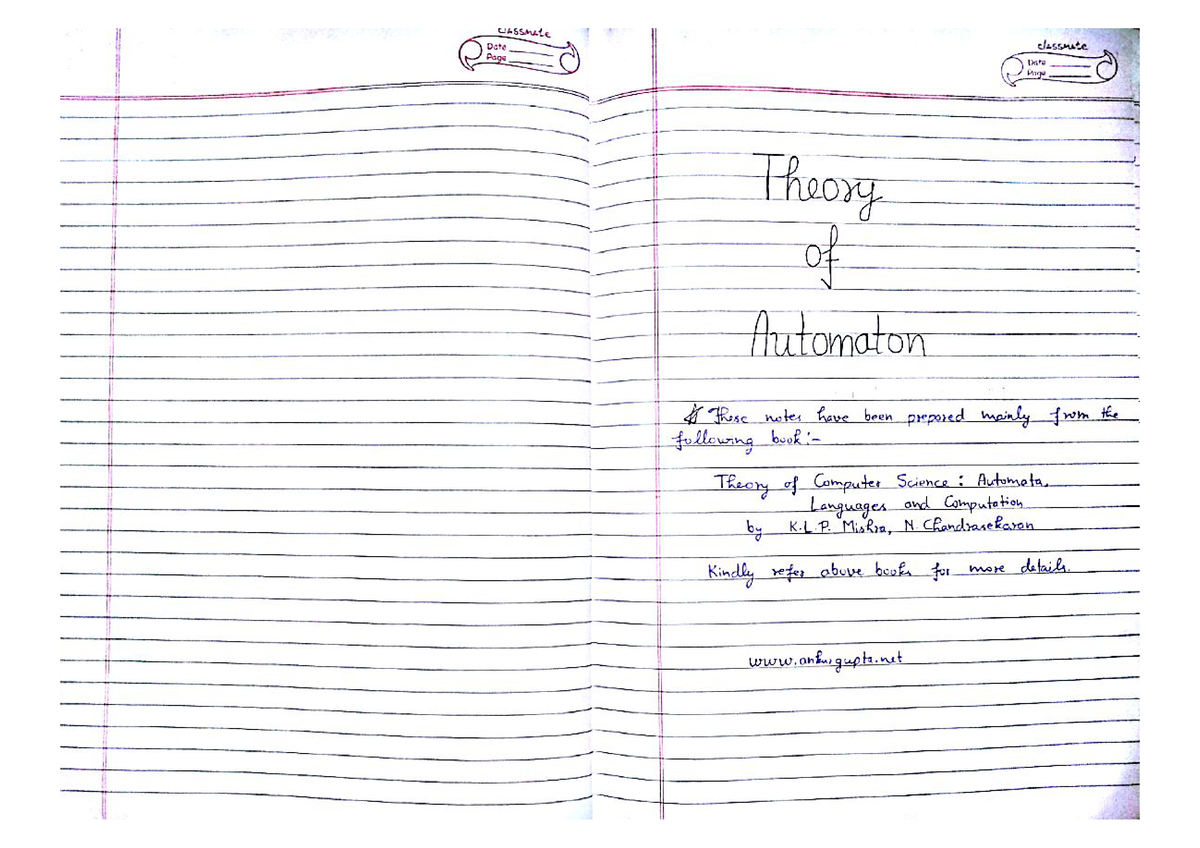 classmate
Date
Page
classmate
Date
Page
Theory
of
Automaton
These notes have been prepared mainly from the
following book:-
Theory of Computer Science: Automata,
Languages and Computation
by K.L.P. Mishra, N. Chandrasekaran
Kindly refer above books for more details.
www.ankurgupta.net